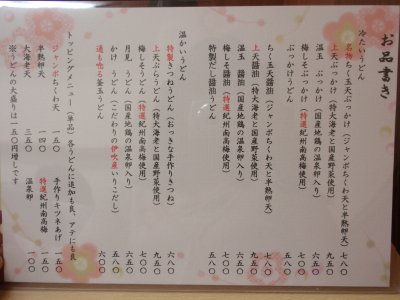 お品書き
冷たいうどん
名物ちく玉天ぶっかけ(ジャンボちくわ天と半熟卵天) 七八〇
上天ぶっかけ(特大海老と国産野菜使用) 九五〇
温玉ぶっかけ(国産地鶏の温泉卵入り) 六五〇
梅しそぶっかけ(特選紀州南高梅使用) 七〇〇
ぶっかけうどん 五八〇
ちく玉天醤油(ジャンボちくわ天と半熟卵天) 七八〇
上天醤油(特大海老と国産野菜使用) 九五〇
温玉醤油(国産地鶏の温泉卵入り) 六五〇
梅しそ醤油(特選紀州南高梅使用) 七〇〇
特製だし醤油うどん 五八〇
温かいうどん
特製きつねうどん(おっきな手作りきつね) 六八〇
上天ぷらうどん(特大海老と国産野菜使用) 九五〇
梅しそうどん(特選紀州南高梅使用) 七〇〇
月見うどん(国産地鶏の温泉卵入り) 六五〇
かけうどん(こだわりの伊吹産いりこだし) 五八〇
通も唸る釜玉うどん 六〇〇
トッピングメニュー(単品)各うどんに追加も良、アテにも良
ジャンボちくわ天 一五〇 手作りキツネあげ 一五〇
半熟卵天 一四〇 特選紀州南高梅 一八〇
大海老天 三五〇 温泉卵 一〇〇
※うどんの大盛りは一五〇円増しです